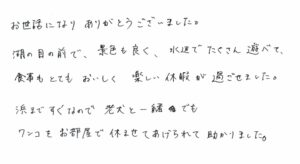 お世話になり ありがとうございました。
湖の目の前で、景色も良く、水辺でたくさん遊べて、
食事もとても おいしく 楽しい休暇が過ごせました。
浜まですぐなので 老犬と一緒でも
ワンコをお部屋で休ませてあげられて助かりました。